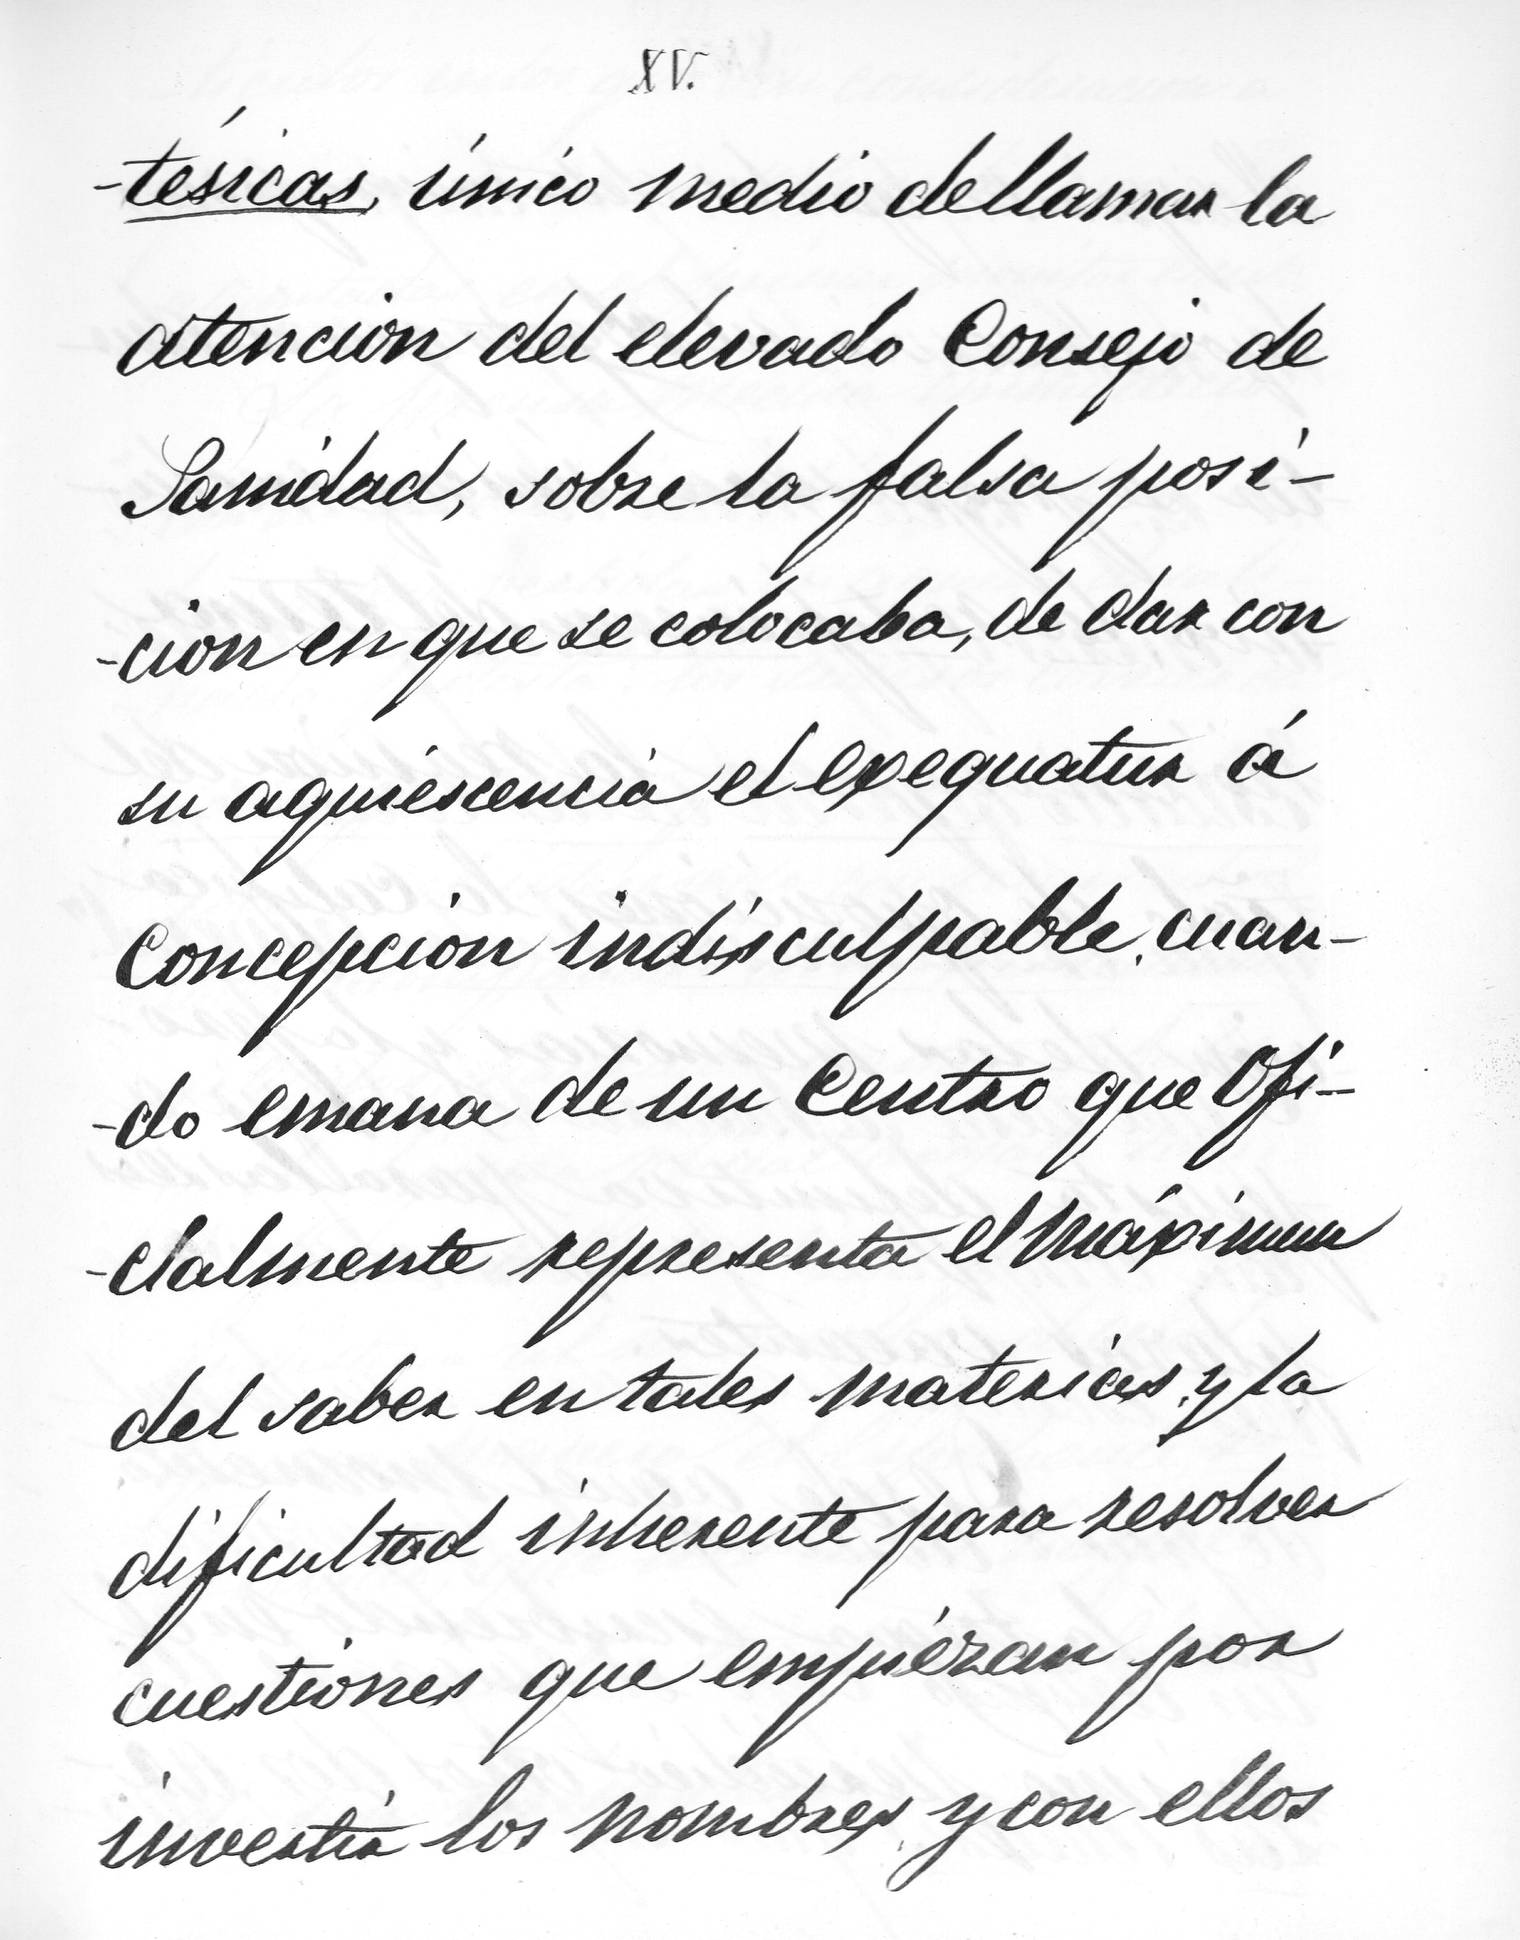 XV.
-tésicas, único medio de llamar la
atencion del elevado Consejo de
Sanidad, sobre la falsa posi-
-cion en que se colocaba, de dar con
su aquiescencia el exequatur á
Concepcion indisculpable, cuan-
-do emana de un Centro que Ofi-
-cialmente representa el máximum
del saber en tales materias, y la
dificultad inherente para resolver
cuestiones que empiézan por
invertir los nombres, y con ellos